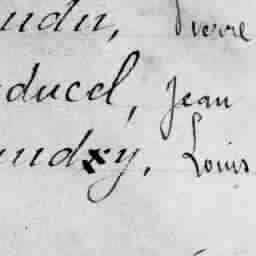 udu, Pierre
ducel, Jean
udry, Louis